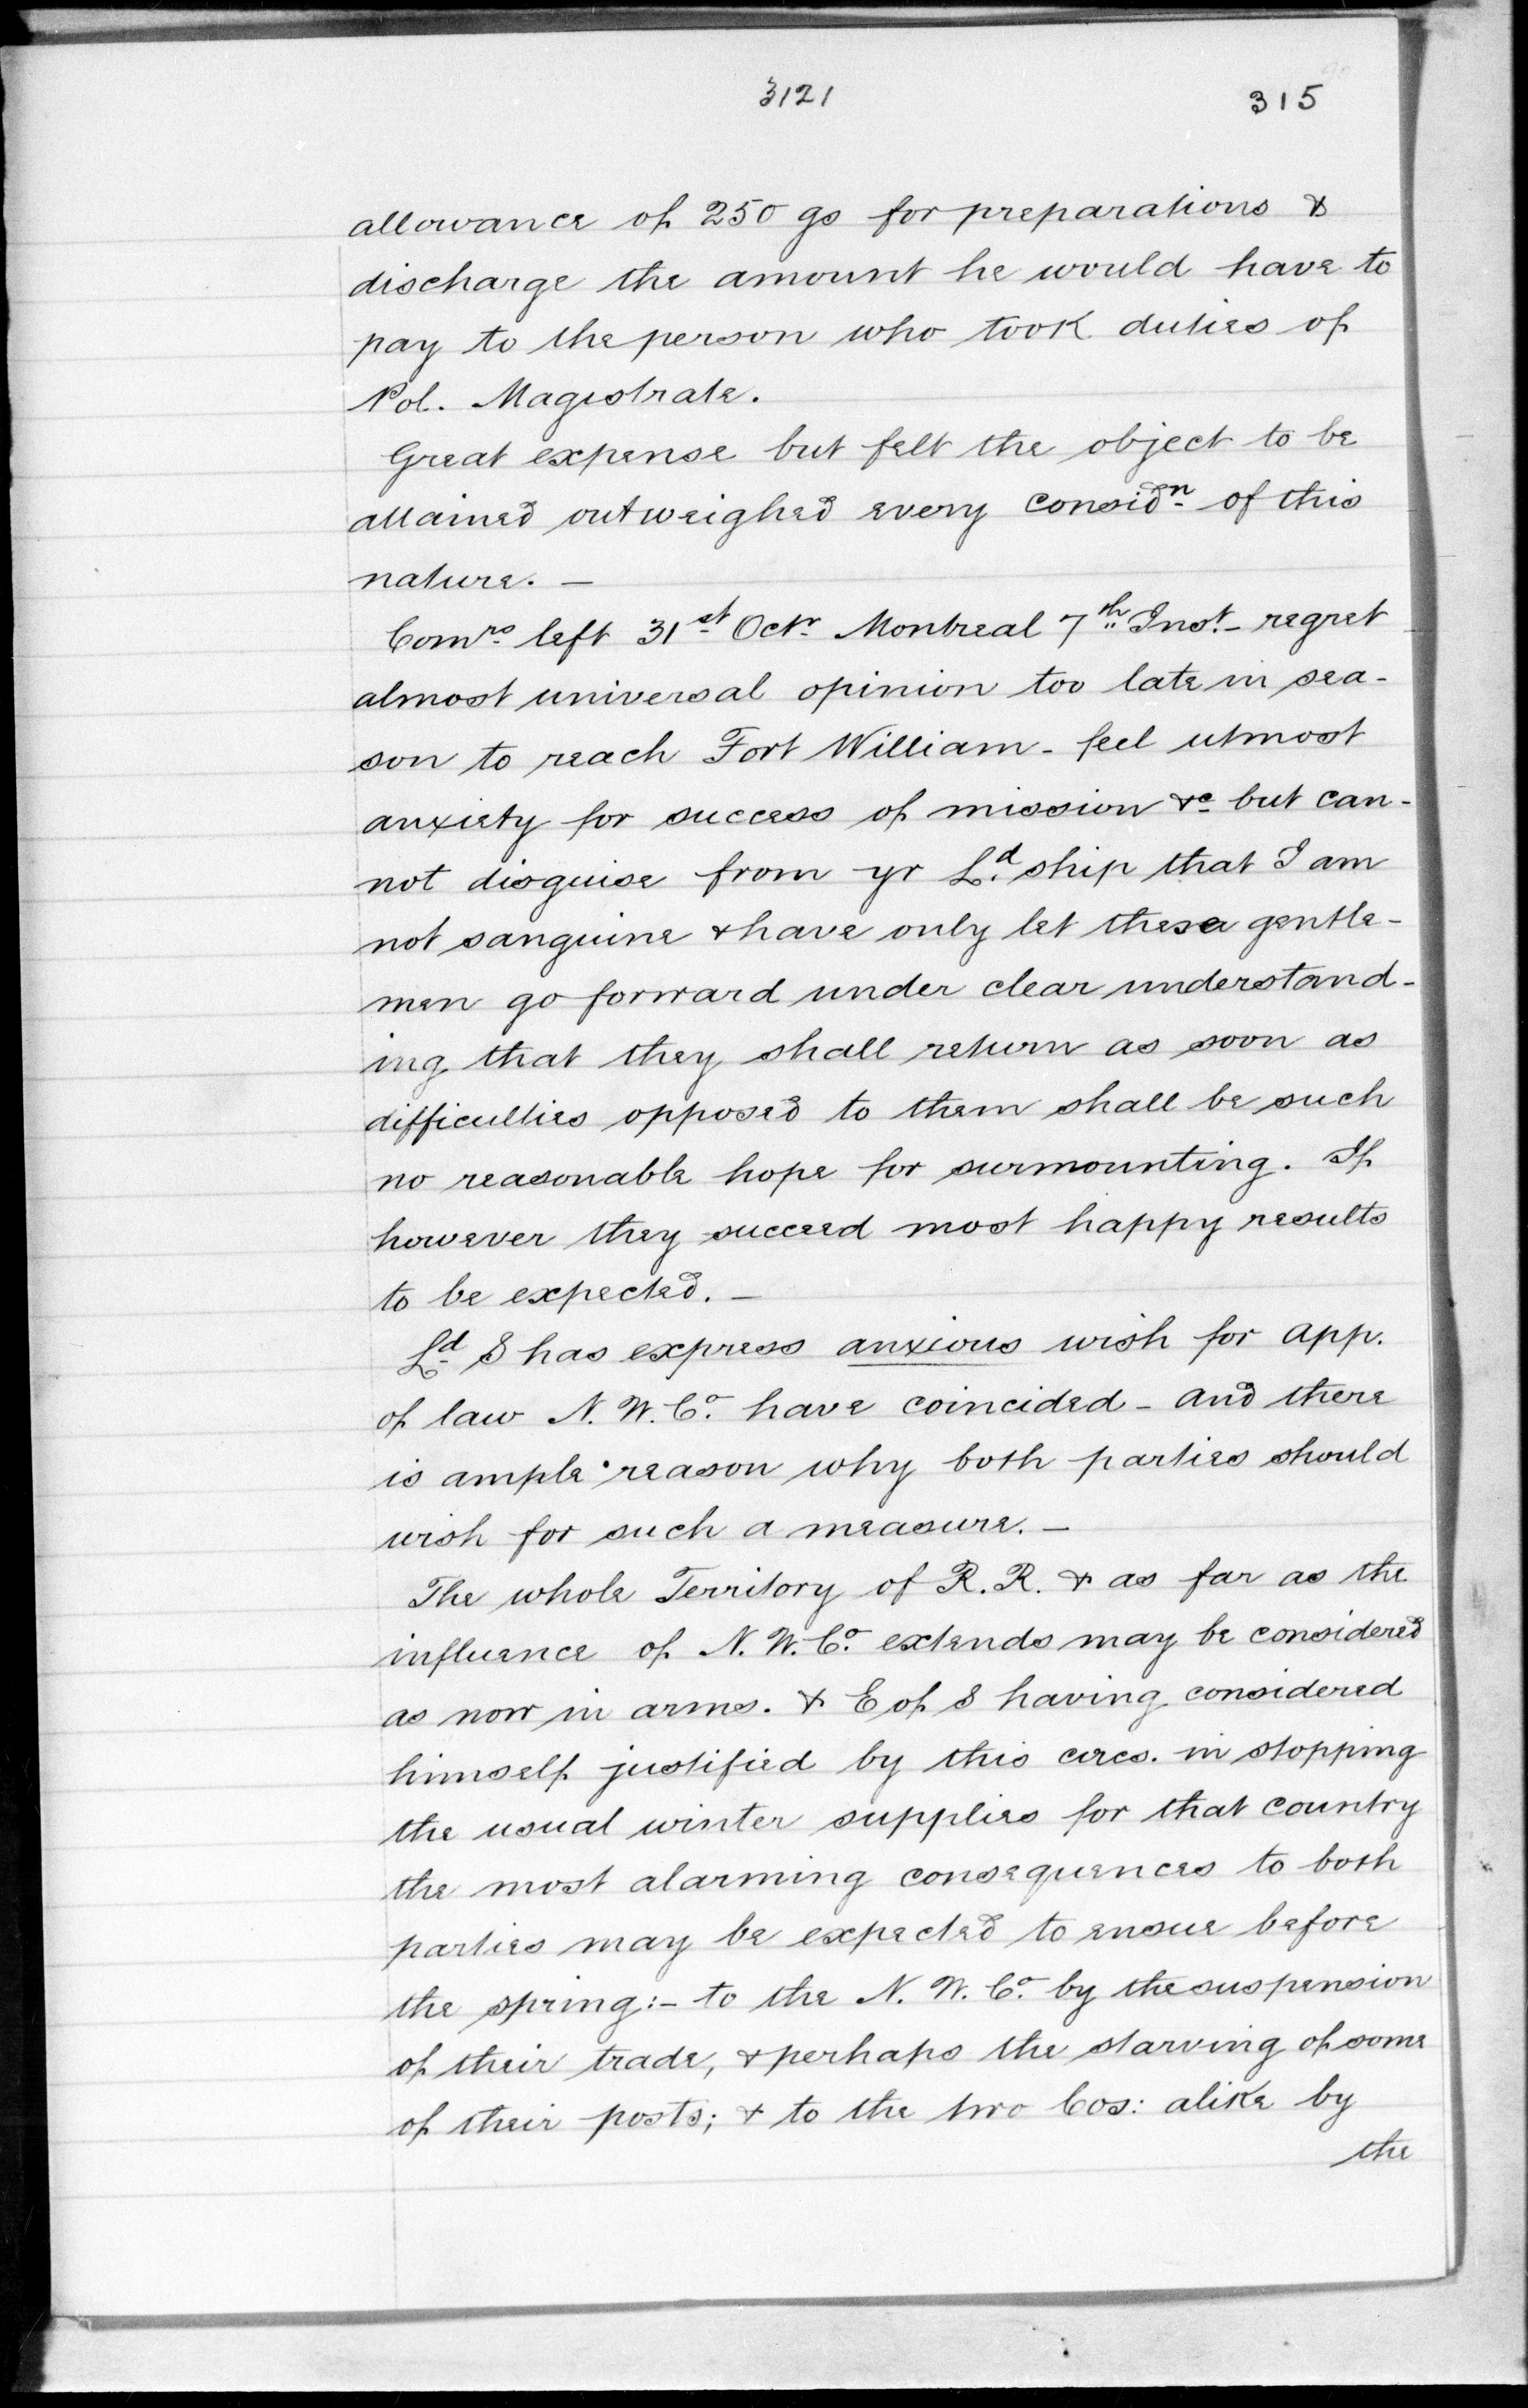 3121 315
allowance of 250 gs for preparations &
discharge the amount he would have to
pay to the person who took duties of
Pol. Magistrate.
Great expense but felt the object to be
attained outweighed every considn of this
nature. —
Comrs left 31st Octr Montreal 7th Inst. - regret
almost universal opinion too late in sea-
son to reach Fort William - feel utmost
anxiety for success of mission &c but can-
not disguise from yr Ld. ship that I am
not sanguine & have only let these gentle-
men go forward under clear understand-
ing that they shall return as soon as
difficulties opposed to them shall be such
no reasonable hope for surmounting. If
however they succeed most happy results
to be expected. —
Ld S has express anxious wish for app.
of law N. W. Co. have coincided - and there
is ample reason why both parties should
wish for such a measure. —
The whole Territory of R. R. & as far as the
influence of N. W. Co. extends may be considered
as now in arms. & E of S having considered
himself justified by this circs. in stopping
the usual winter supplies for that country
the most alarming consequences to both
parties may be expected to ensue before
the spring: - to the N. W. Co. by the suspension
of their trade, & perhaps the starving of some
of their posts; & to the two Cos: alike by
the